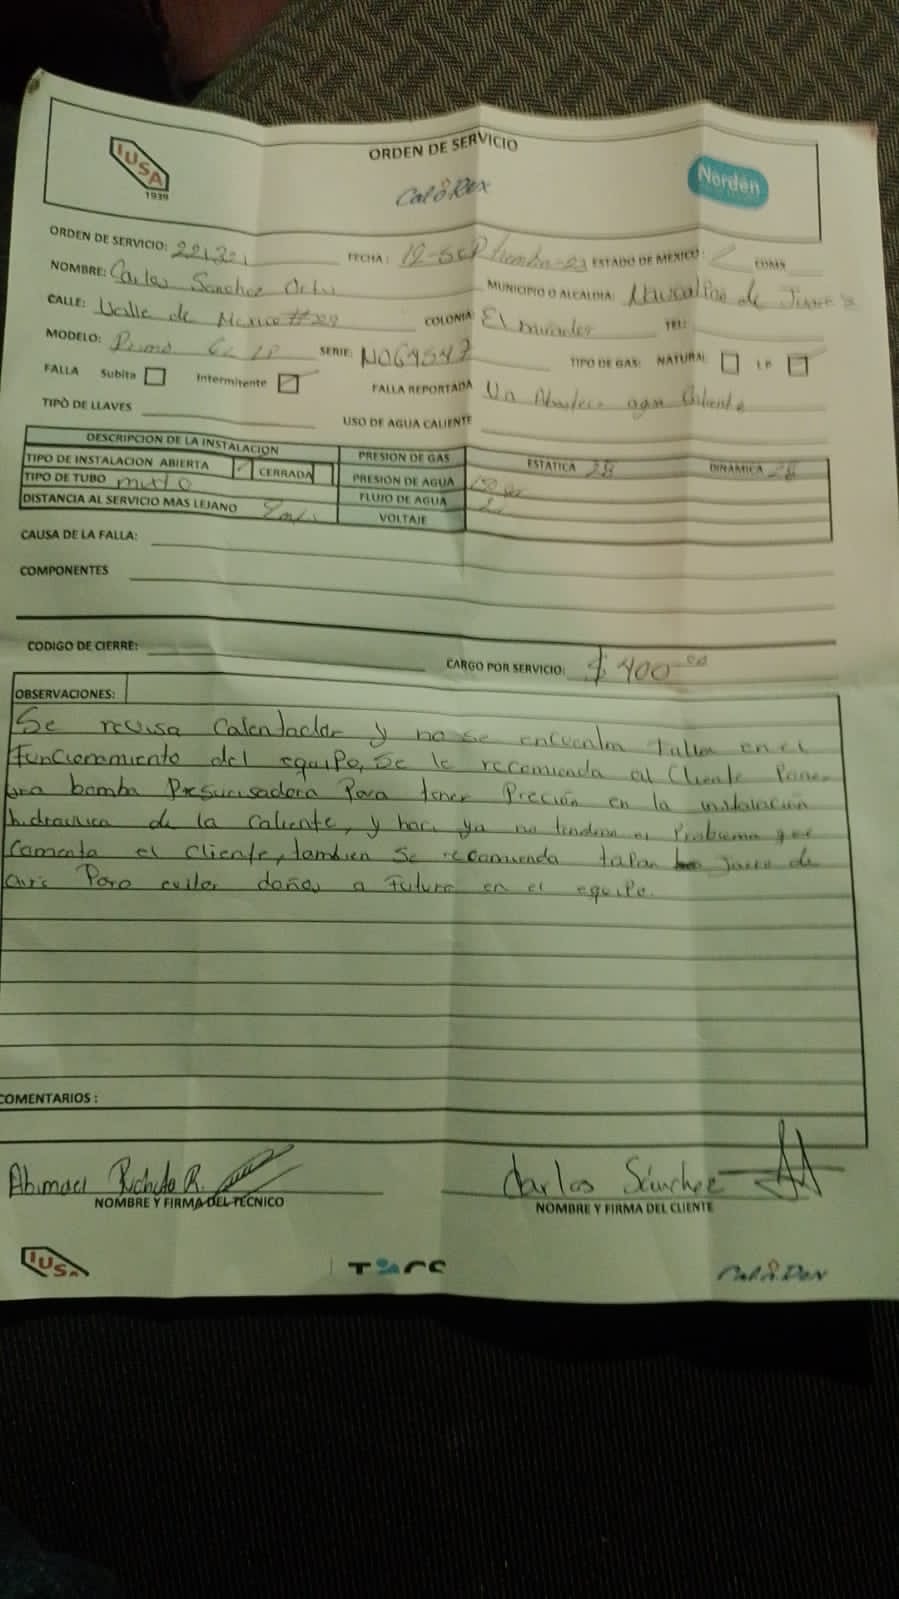 IUSA
1939
ORDEN DE SERVICIO
CALOREX
Norden
ORDEN DE SERVICIO: FECHA: 12-septiembre-23 ESTADO DE MEXICO: CDMX
NOMBRE: Carlos Sanchez MUNICIPIO O ALCALDIA: Naucalpan de
CALLE: Valle de Mexico COLONIA: El mirador TEL:
MODELO: SERIE: N064547 TIPO DE GAS: NATURAL L.P
FALLA Subita Intermitente FALLA REPORTADA agua Caliente
TIPO DE LLAVES USO DE AGUA CALIENTE
DESCRIPCION DE LA INSTALACION PRESION DE GAS ESTATICA 28 DINAMICA 28
TIPO DE INSTALACION ABIERTA CERRADA PRESION DE AGUA
TIPO DE TUBO FLUJO DE AGUA
DISTANCIA AL SERVICIO MAS LEJANO VOLTAJE
CAUSA DE LA FALLA:
COMPONENTES
CODIGO DE CIERRE: CARGO POR SERVICIO: $ 400 00
OBSERVACIONES:
Se revisa Calentador y no se encuentra falla en el
Funcionamiento del equipo, Se le recomienda al Cliente Poner
una bomba Presurisadora Para tener Preción en la instalación
hidraulica de la Caliente, y ya no tendra el Problema que
Comenta el Cliente, tambien Se recomienda tapar Jarro de
aire Para evitar daños a Futuro en el equipo.
COMENTARIOS :
Abimael R. Carlos Sánchez
NOMBRE Y FIRMA DEL TECNICO NOMBRE Y FIRMA DEL CLIENTE
IUSA CALOREX